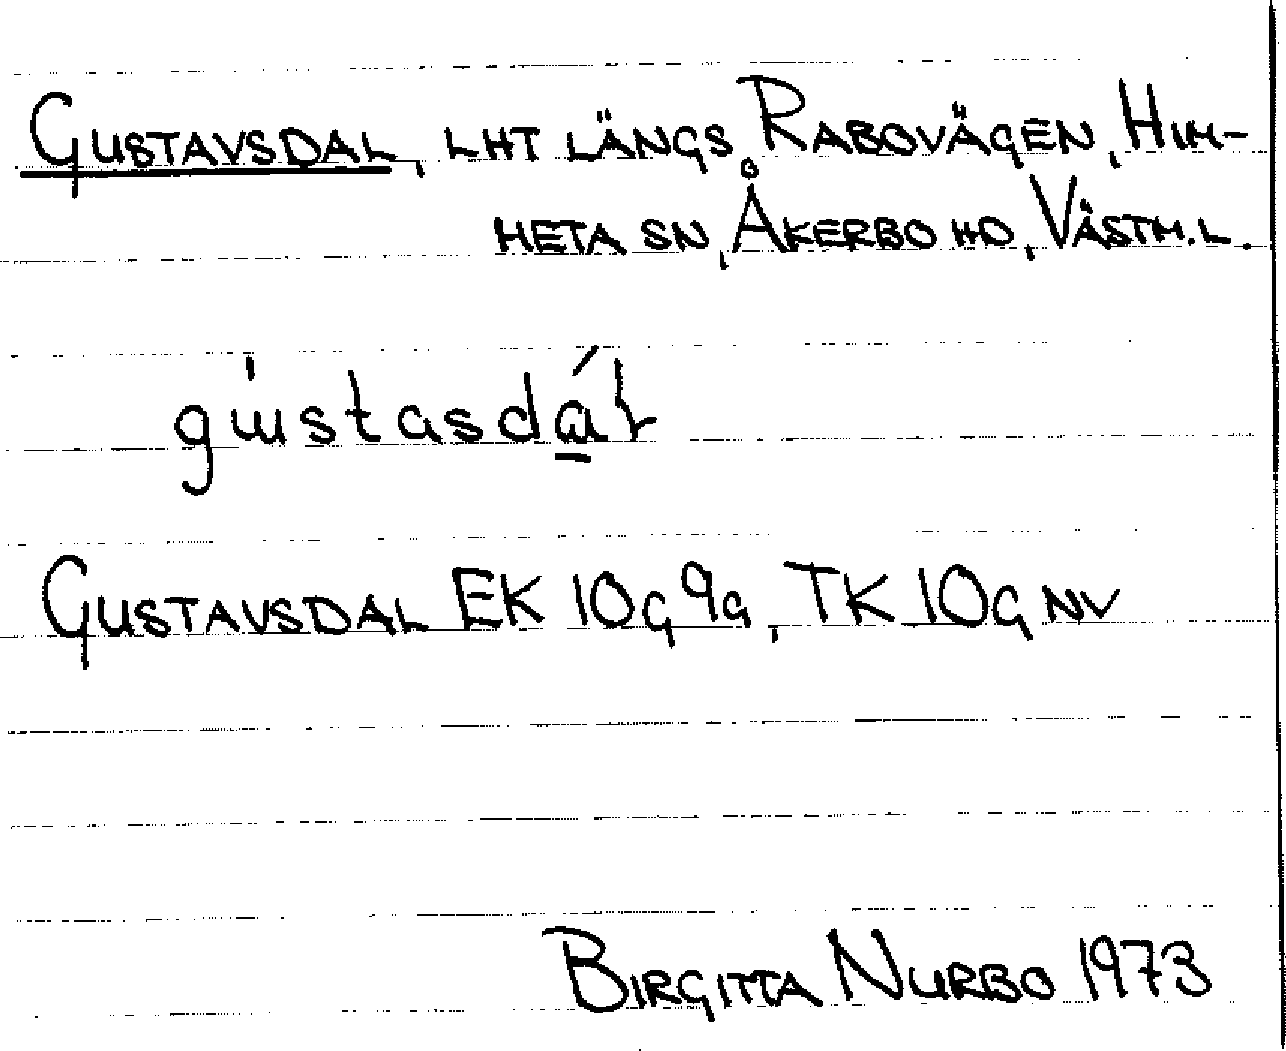 GUSTAVSDAL, LHT LÄNGS RABOVÄGEN, HIM-
META SN, ÅKERBO HD, VÄSTM. L.
gustasdál
GUSTAVSDAL EK 10G 9g, TK 10G NV
BIRGITTA NURBO 1973